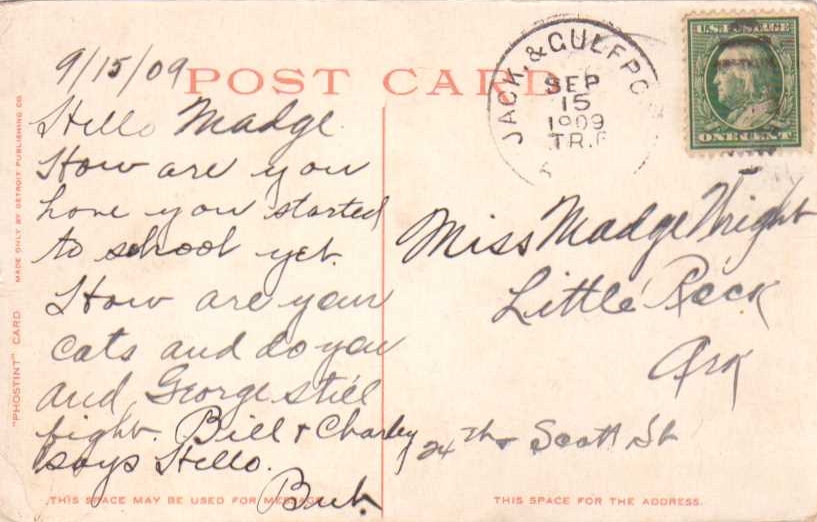 9/15/09
POST CARD
Hello Madge
How are you
have you started
to school yet.
How are your
cats and do you
and George still
fight. Bill & Charley
says Hello.
Bub.
JACK. & GULFPO
SEP
15
1909
TR.P
U.S. POSTAGE
ONE CENT
Miss Madge Wright
Little Rock
Ark
24th & Scott St
"PHOSTINT" CARD
MADE ONLY BY DETROIT PUBLISHING CO.
THIS SPACE MAY BE USED FOR MESSAGE
THIS SPACE FOR THE ADDRESS.